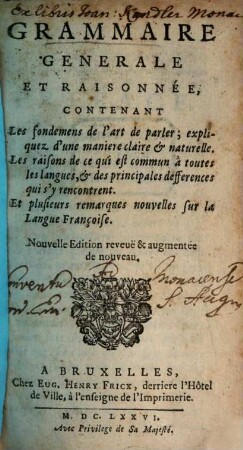 Ex libris Joan: Kendler Monac
GRAMMAIRE
GENERALE
ET RAISONNÉE,
CONTENANT
Les fondemens de l'art de parler; expli-
quez d'une maniere claire & naturelle.
Les raisons de ce qui est commun à toutes
les langues, & des principales defferences
qui s'y rencontrent.
Et plusieurs remarques nouvelles sur la
Langue Françoise.
Nouvelle Edition reveuë & augmentée
de nouveau.
Conventu
Monacensi
S. August
A BRUXELLES,
Chez EUG. HENRY FRICX, derriere l'Hôtel
de Ville, à l'enseigne de l'Imprimerie.
M. DC. LXXVI.
Avec Privilege de Sa Majesté.